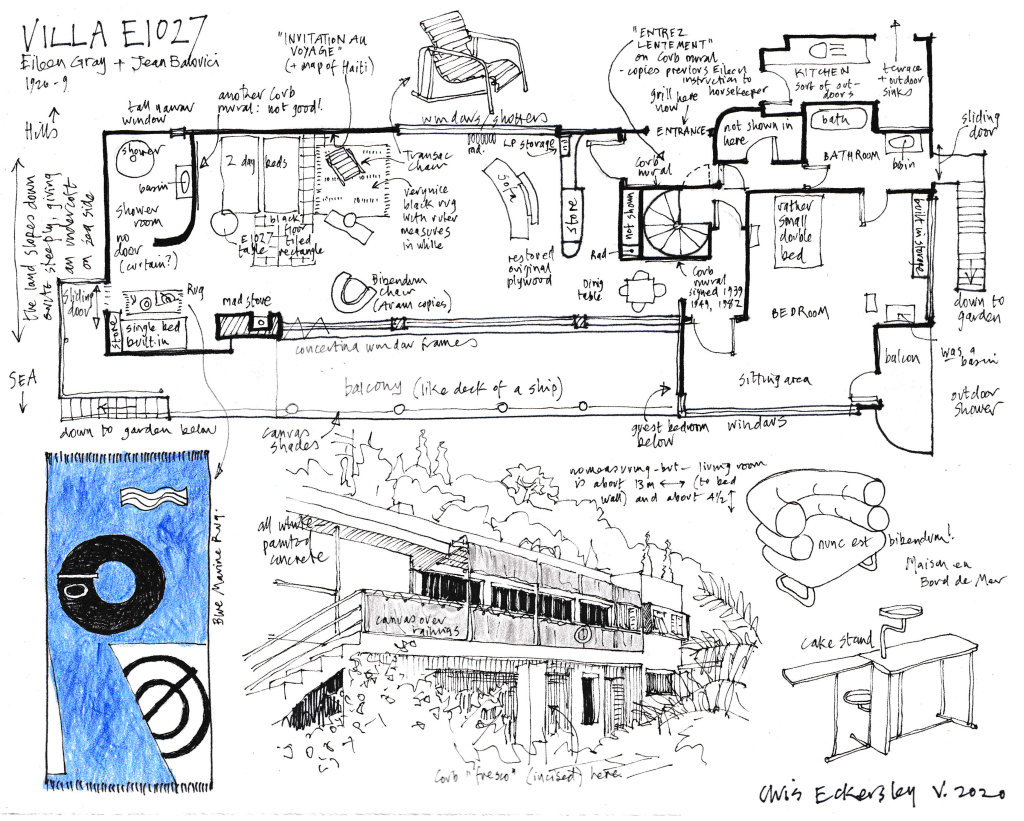 VILLA E1027
Eileen Gray + Jean Badovici
1926-9
Hills
the land slopes down
quite steeply, giving
an undercroft
on sea side
SEA
tall narrow
window
another Corb
mural: not good!
"INVITATION AU
VOYAGE"
(+ map of Haiti)
windows/shutters
rad.
LP storage
"ENTREZ
LENTEMENT"
on Corb mural
- copies previous Eileen
instruction to
housekeeper
grill here
now
ENTRANCE
Corb
mural
not shown in
here
KITCHEN
sort of out-
doors
terrace
+ outdoor
sinks
sliding
door
bath
BATHROOM
basin
shower
basin
shower
room
no
door
(curtain?)
2 day beds
E1027
table
black
floor
tiled
rectangle
Transat
chair
very nice
black rug
with ruler
measures
in white
sofa
restored
original
plywood
store
not shown
Rad
Ding
table
Corb
mural
signed 1939
1949, 1982
rather
small
double
bed
built in storage
BEDROOM
down to
garden
was a
basin
balcon
outdoor
shower
sitting area
sliding
door
Rug
store
single bed
built in
mad stove
Bibendum
chair
(Aram copies)
concertina window frames
balcony (like deck of a ship)
down to garden below
canvas
shades
guest bedroom
below
windows
Blue Marine Rug.
no measuring - but - living room
is about 13m ↔ (to bed
wall) and about 4½ ↕
all white
painted
concrete
canvas over
railings
Corb "fresco" (incised) here
nunc est bibendum!
Maison en
Bord de Mer
cake stand
Chris Eckersley V. 2020